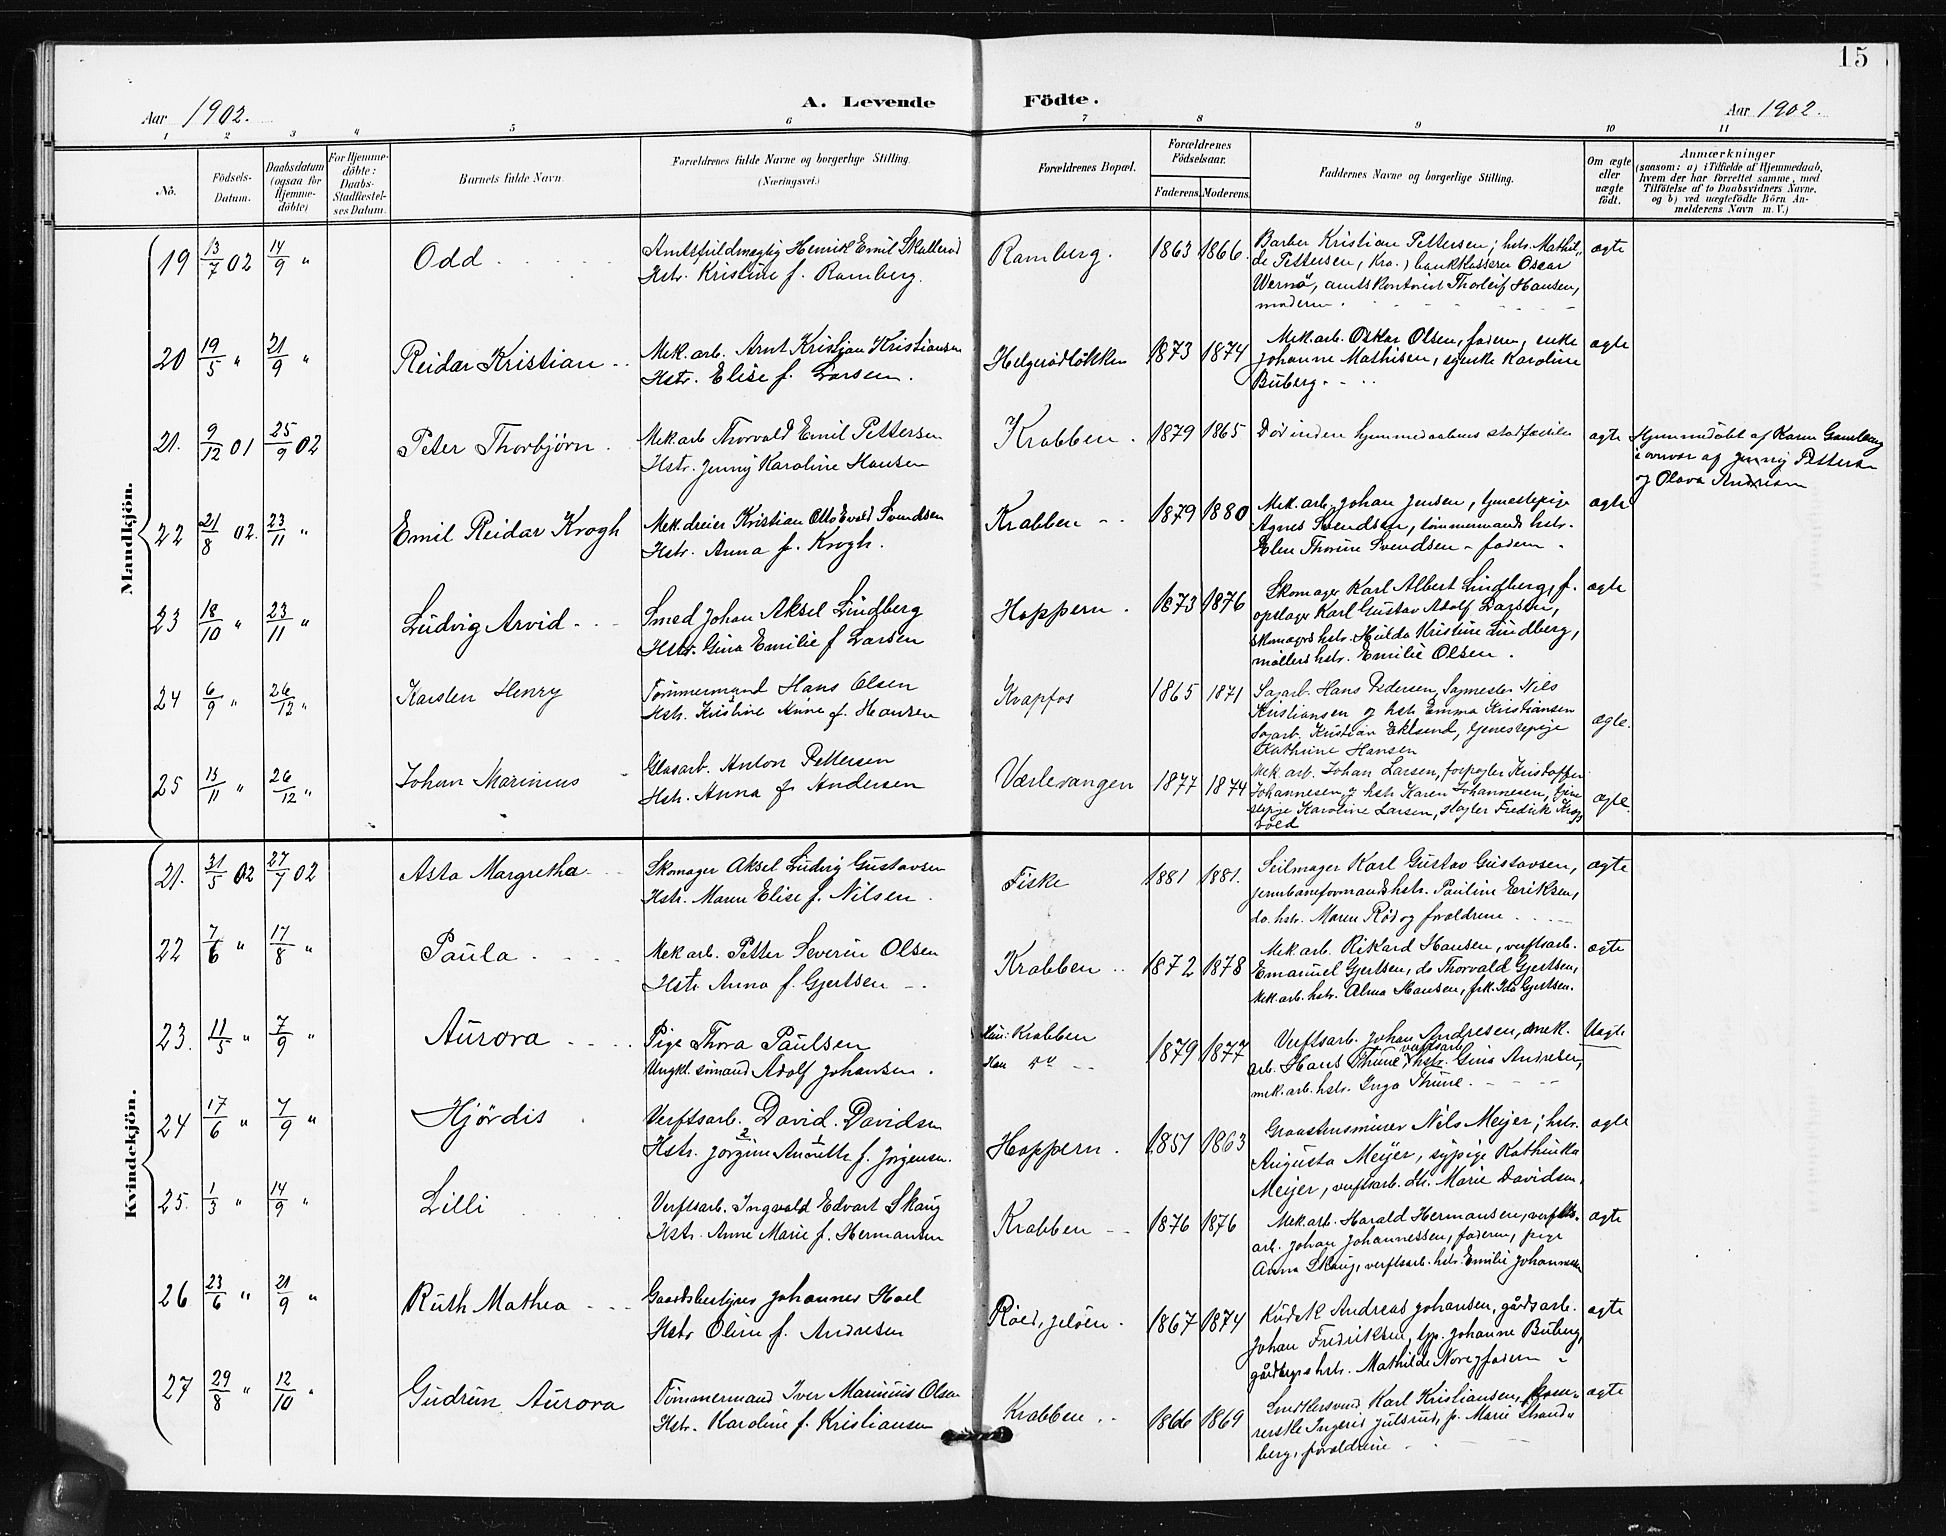 15
Aar 1902. A. Levende Födte. Aar 1902.
1 2 3 4 5 6 7 8 9 10 11
No. Födsels-Datum. Daabsdatum (ogsaa for Hjemme-døbte) For Hjemme-døbte: Daabs-Stadfæstel-ses Datum. Barnets fulde Navn Forældrenes fulde Navne og borgerlige Stilling. (Næringsvei.) Forældrenes Bopæl. Forældrenes Födselsaar. Faderens. Moderens. Faddernes Navne og borgerlige Stilling. Om ægte eller uægte født. Anmærkninger (saasom: a) i Tilfælde af Hjemmedaab, hvem der har forrettet samme, med Tilføielse af to Daabsvidners Navne, og b) ved uægtefødte Börn An-melderens Navn m. V.)
Mandkjön.
19 13/7 02 14/9 " Odd Amtsfuldmægtig Henrik Emil Skallerud Ramberg. 1863 1866. Barber Kristian Pettersen; hstr. Mathil- ægte
Hstr. Kristine f. Ramberg. de Pettersen, Kra., bankkasserer Oscar
Wernø, amtskontorist Thorleif Hansen,
moderen.
20 19/5 " 21/9 " Reidar Kristian Mek. arb. Arnt Kristian Kristiansen Helgerødløkken 1873 1874 Mek. arb. Oskar Olsen, faderen, enke ægte
Hstr. Elise f. Larsen. Johanne Mathisen, syenke Karoline
Buberg.
21. 9/12 01 25/9 02 Peter Thorbjörn Mek. arb Thorvald Emil Pettersen Krabben. 1879 1865 Død inden hjemmedaabens ægte Hjemmedøbt af Karen
Hstr. Jenny Karoline Hansen af Jenny Pettersen
og Olava
22 21/8 02. 23/11 " Emil Reidar Krogh Mek. dreier Kristian Otto Evald Svendsen Krabben 1879 1880 Mek. arb. Johan Jensen, tjenestepige ægte
Hstr. Anna f. Krogh. Agnes Svendsen, tömmermands hstr.
Elen Thorine Svendsen - faderen.
23 18/10 " 23/11 " Ludvig Arvid Smed Johan Aksel Lindberg Hoppern. 1873 1876 Skomager Karl Albert Lindberg, f. ægte
Hstr. Gina Emilie f. Larsen opslager Karl Gustav Adolf Larsen,
skomagers hstr. Hulda Kristine Lindberg,
møllers hstr. Emilie Olsen.
24 6/9 " 26/12 " Karsten Henry Tømmermand Hans Olsen Krapfos 1865 1871 Sagarb. Hans Pedersen, Sagmester Nils
Hstr. Kristine Anne f. Hansen Kristiansen og hstr Emma Kristiansen ægte.
Sagarb. Kristian Eklund, tjenestepige
Kathrine Hansen
25 15/11 " 26/12 " Johan Marinius Glasarb. Anton Pettersen Værlevangen 1877 1874 Mek. arb. Johan Larsen, Kristoffer
Hstr. Anna f. Andersen Johannesen, og hstr Karen Johannesen, tjene ægte.
stepige Karoline Larsen, Fredrik
Kvindekjön.
21. 31/5 02 27/7 02 Asta Margretha Skomager Aksel Ludvig Gustavsen Fiske 1881 1881. Seilmager Karl Gustav Gustavsen, ægte
Hstr. Maren Elise f. Nilsen. jernbaneformands hstr. Pauline Eriksen,
do. hstr. Maren Rød og forældrene
22 7/6 " 17/8 " Paula Mek arb. Petter Severin Olsen Krabben 1872 1878 Mek arb. Rikard Hansen, verftsarb. ægte
Hstr Anna f. Gjertsen Emanuel Gjertsen, do Thorvald Gjertsen,
Mek. arb. hstr. Alma Hansen, frk. Ida Gjertsen.
23. 11/5 " 7/9 " Aurora Pige Thora Paulsen Hun: Krabben 1879 1877 Verftsarb. Johan Andresen, mek. Uægte
Ungk. sömand Adolf Johansen. Han do arb. Hans Thune, verftsarb hstr. Gina Andresen,
mek. arb. hstr. Inga Thune.
24 17/6 " 7/9 " Hjördis Verftsarb. David Davidsen Hoppern. 1851 1863 Graastensminer Nils Meyer; hstr. ægte
Hstr. Jörgine Annette f. Jörgensen. Augusta Meijer, sypige Kathinka
Meijer, verftsarb. str. Marie Davidsen,
25. 1/3 " 14/9 " Lilli Verftsarb. Ingvald Edvart Skaug Krabben 1876 1876 Mek. arb. Harald Hermansen, verfts- ægte
Hstr. Anne Marie f. Hermansen arb. Johan Johannessen, faderen, pige
Anna Skaug, verftsarb. hstr. Emilie Johannessen
26 23/6 " 21/9 " Ruth Mathea Gaardsbestyrer Johannes Hoel Røed, Jeløen. 1867 1874 Kudsk Andreas Johansen, gårdsarb. ægte
Hstr Oline f. Andresen Johan Fredriksen, tjp. Johanne Buberg,
hstr. Mathilde faderen
27 29/8 " 12/10 " Gudrun Aurora Tömmermand Iver Marinius Olsen Krabben 1866 1869 Smedesvend Karl Kristiansen, ægte
Hstr. Karoline f. Kristiansen Ingerid Julsrud, p. Marie Strand-
berg, forældrene